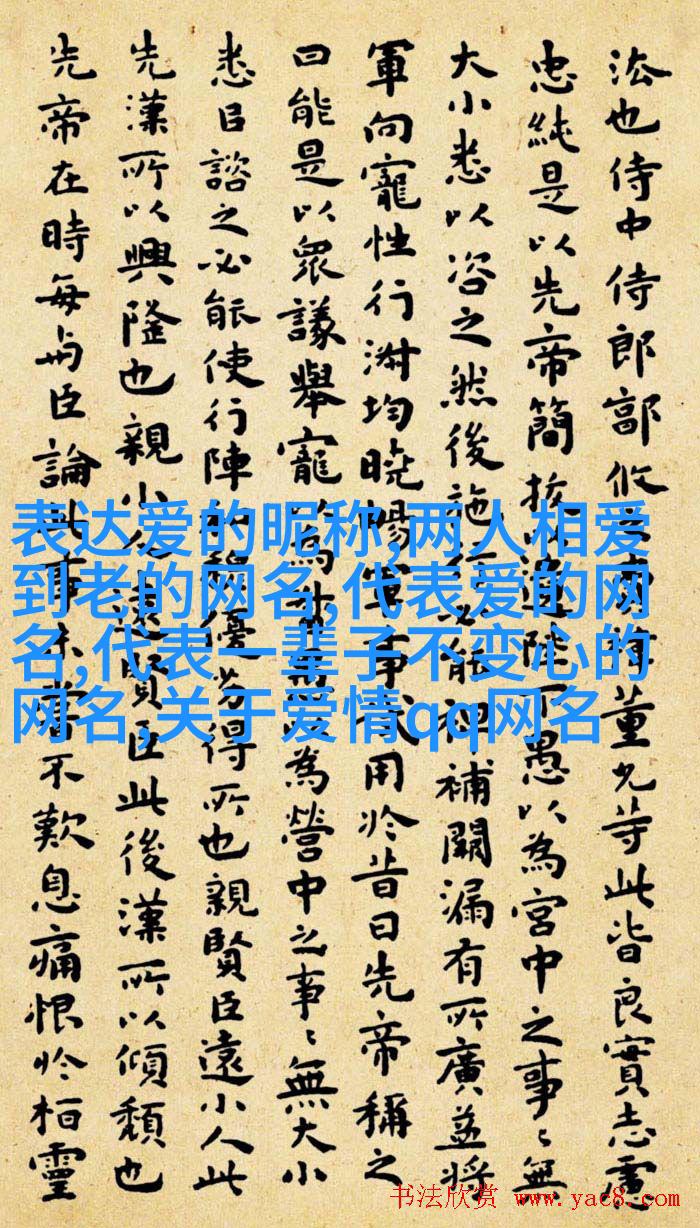 法也侍中侍郎郭攸之費禕董允等此皆良實志慮
忠純是以先帝簡拔以遺陛下愚以為宮中之事〻無
大小悉以咨之然後施行必能裨補闕漏有所廣益將
軍向寵性行淑均曉暢軍事試用於昔日先帝稱之
曰能是以衆議舉寵以為督愚以為營中之事〻無大小
悉以諮之必能使行陣和穆優劣得所也親賢臣遠小人此
先漢所以興隆也親小人遠賢臣此後漢所以傾頹也
先帝在時每與臣論此事未嘗不歎息痛恨於桓靈
表达爱的昵称,两人相爱
到老的网名,代表爱的网
名,代表一辈子不变心的
网名,关于爱情qq网名
书法欣赏 www.yac8.com